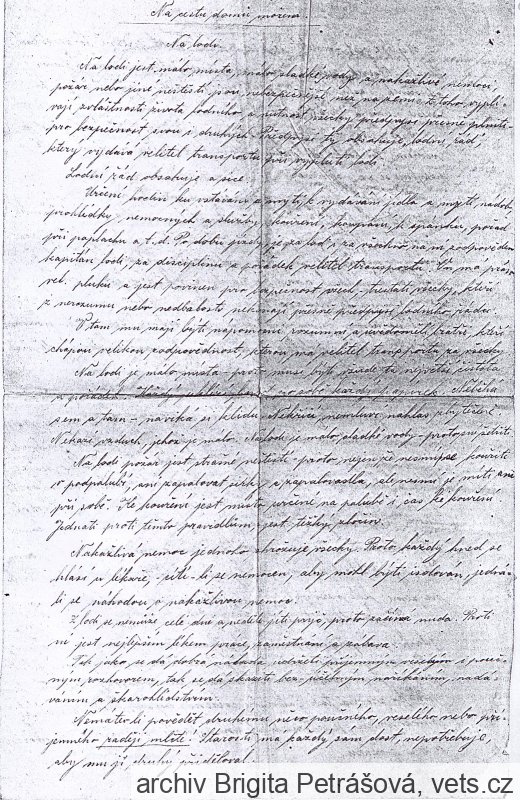 Na cestu domů mořem.
Na lodi.
Na lodi jest málo místa, málo sladké vody a nakažlivé nemoci
požár nebo jiné neštěstí jsou nebezpečnější než na zemi. Z toho vyplí-
vají zvláštnosti života lodního a nutnost všechny předpisy přesně plniti
pro bezpečnost svou i druhých. Předpisy ty obsahuje lodní řád,
který vydává velitel transportu při vyplutí lodi.
Lodní řád obsahuje a sice:
Určení hodin ku vstávání a mytí, k vydávání jídla a mytí nádob,
prohlídky, nemocných a služby, kouření, koupání, k spánku, pořad
při poplachu a t.d. Po dobu jízdy je za loď, a za všechno na ní zodpověden
kapitán lodi, za disciplinu a pořádek velitel transportu. On má právo
vel. pluku a jest povinen pro bezpečnost všech, trestati všechny, kteří
z nerozumu nebo nedbalosti nekonají přesně předpisy lodního řádu.
V tom mu mají býti nápomocni rozumní a uvědomělí bratři, kteří
chápou velikou zodpovědnost, kterou má velitel transportu za všechny.
Na lodi je málo místa - proto musí býti všude ta největší čistota
a pořádek. Každý
sem a tam - navyká si klidu. Nekřičí, nemluví nahlas zbytečně.
Nekazí vzduch, jehož je málo. Na lodi je málo sladké vody - proto jí šetřiti
Na lodi požár jest strašné neštěstí - proto nejen že nesmí se kouřiti
v podpalubí, ani zapalovat sirky a zapalovadla, ale nesmí je míti ani
při sobě. Ke kouření jest místo určené na palubě i čas ke kouření.
Jednati proti těmto pravidlům jest těžký zločin.
Nakažlivá nemoc jednoho ohrožuje všechny. Proto každý hned se
hlásí u lékaře, cítí-li se nemocen, aby mohl býti isolován, jedná-
li se náhodou o nakažlivou nemoc.
Z lodi se nemůže celé dne a neděle jíti pryč, proto začíná nuda. Proti
ní jest nejlepším lékem práce, zaměstnání a zábava.
Tak jako se dá dobrá nálada udržeti příjemným veselým i pouč-
ným rozhovorem, tak se dá zkaziti bezúčelným naříkáním, nadá-
váním a škarohlídstvím.
Nemáte-li povědět druhému něco poučného, veselého nebo pří-
jemného raději mlčte! Starostí má každý sám dost, nepotřebuje,
aby mu jí druhý přidělával.
archiv Brigita Petrášová, vets.cz